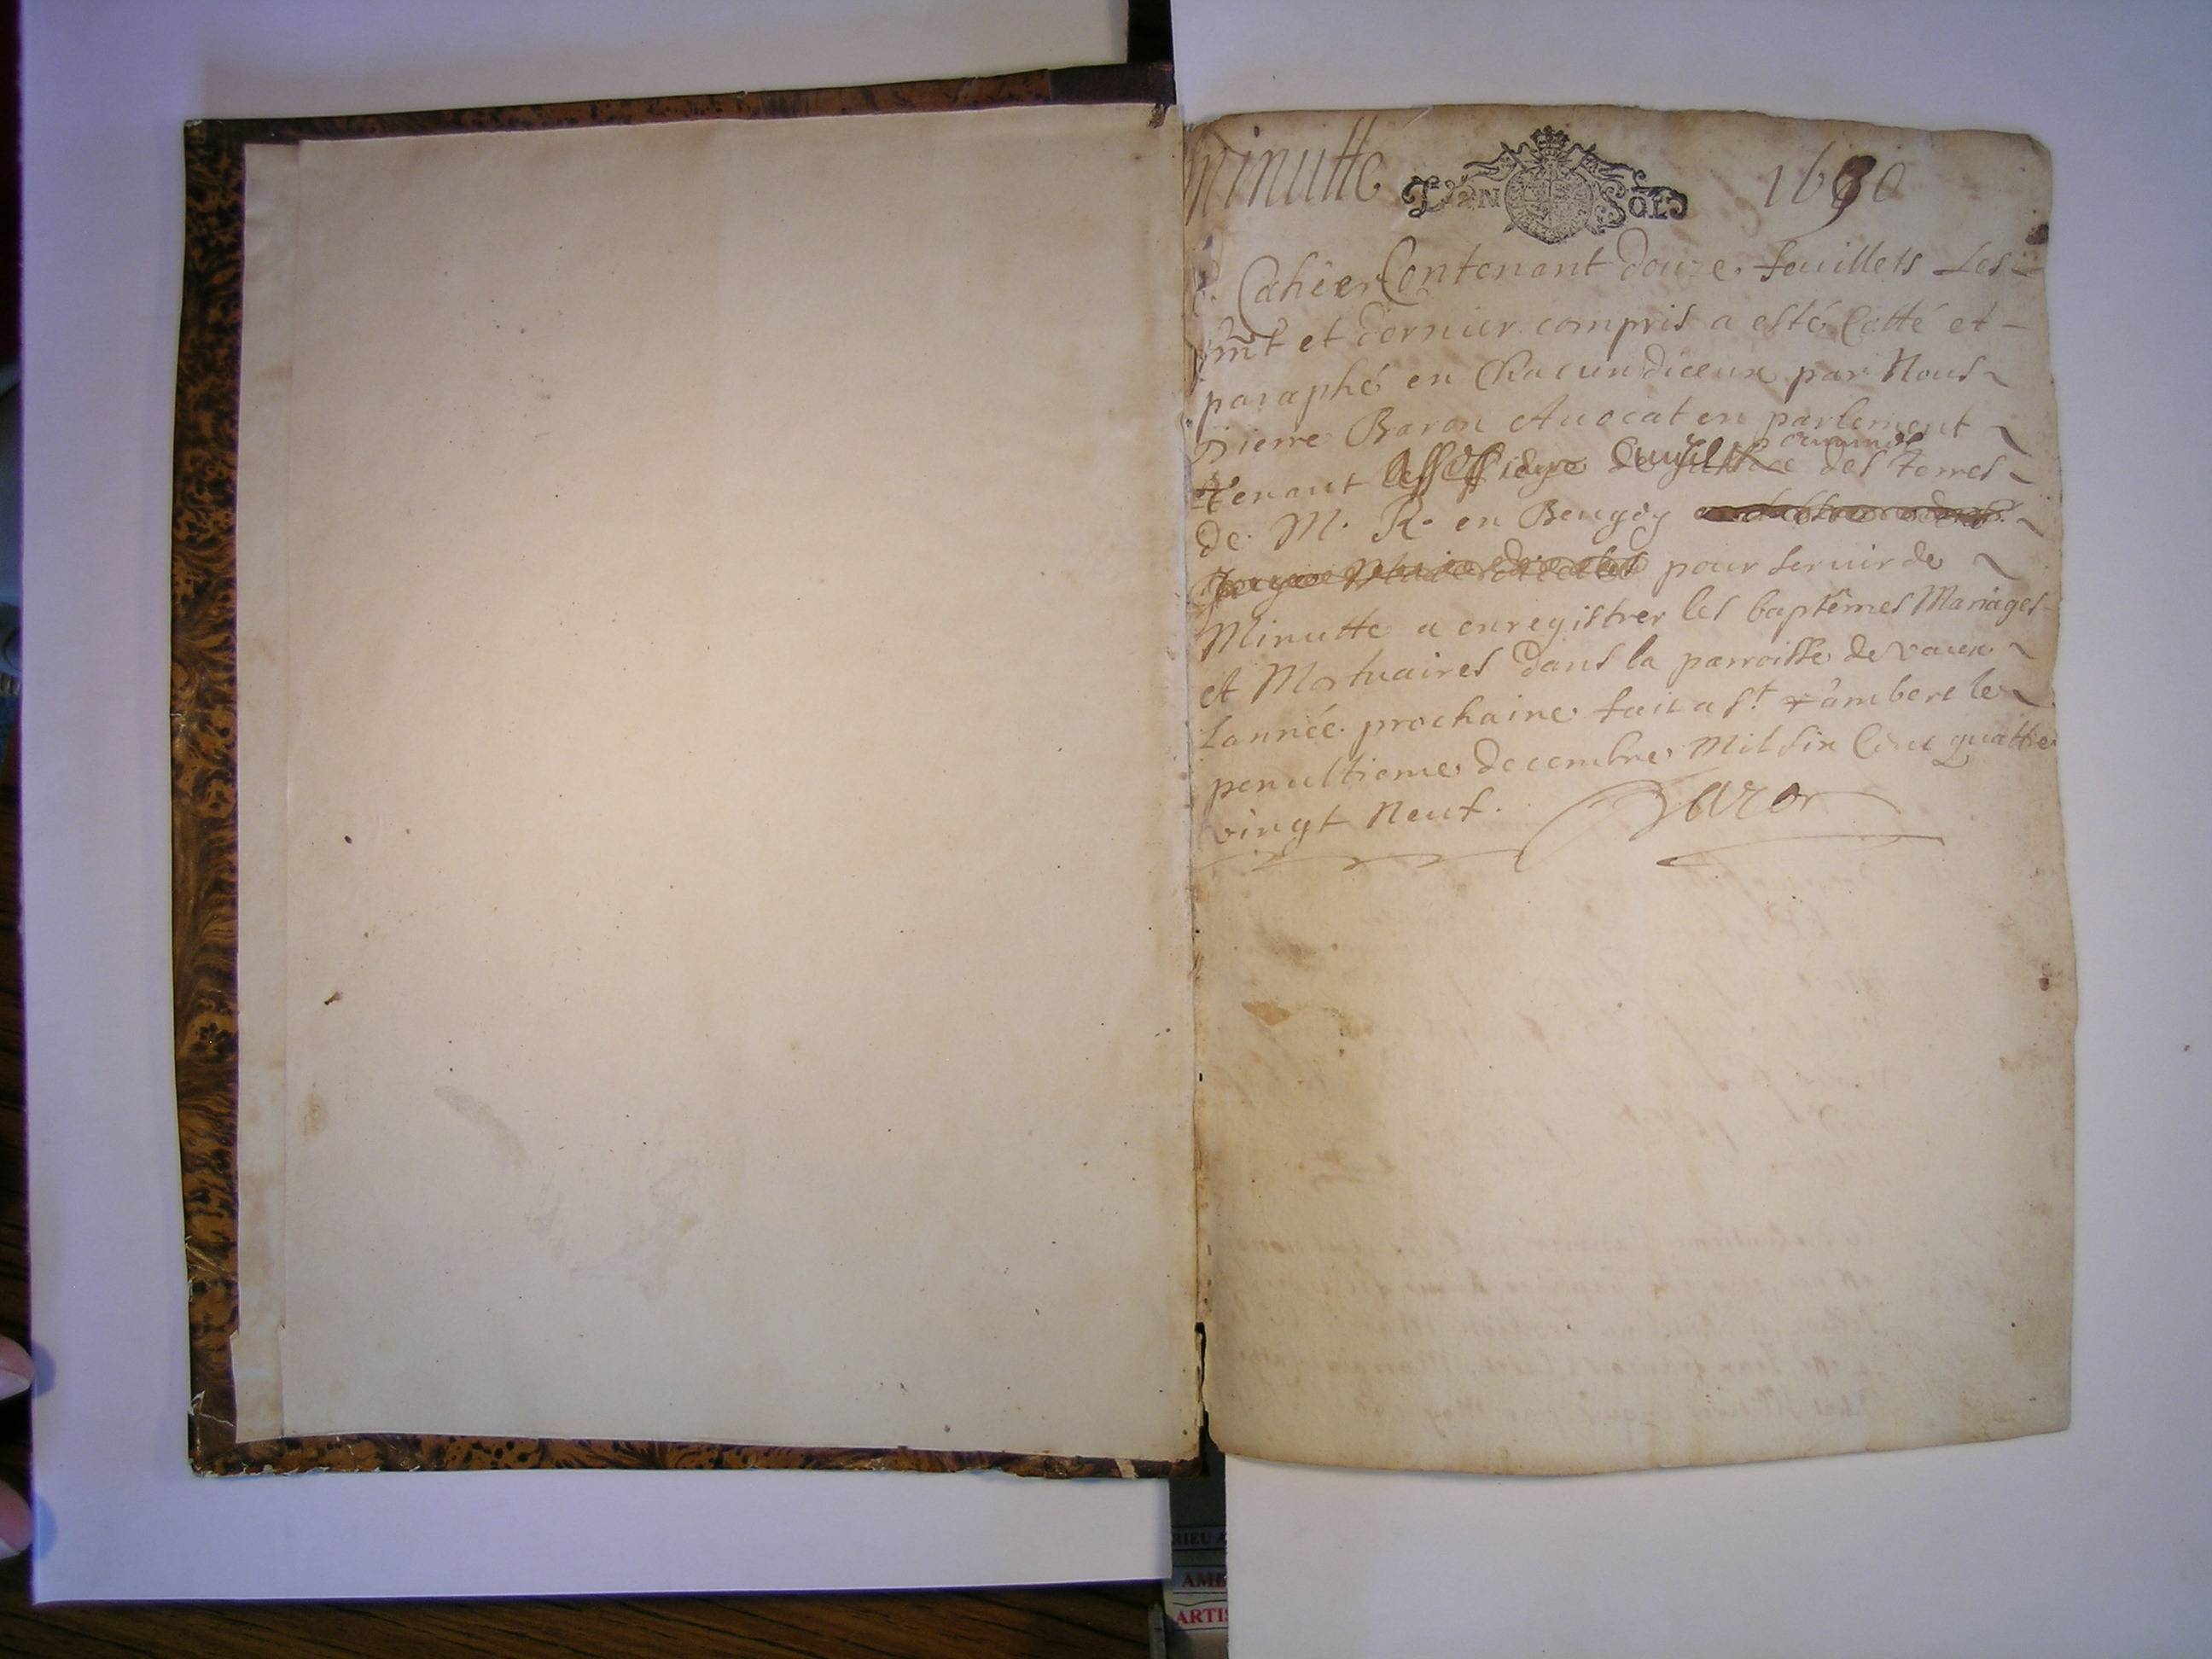 minutte D'UN SOL 1690
Cahier Contenant douze feuillets Les
et dernier compris a esté Cotté et
paraphé en Chacun diceux par Nous
Pierre Baron Auocat en parlement
ordinaire
Tenant des terres
de M. R. en Beugey
pour seruir de
Minutte a enregistrer les baptêmes Mariages
et Mortuaires dans la parroisse de vaux
Lannée prochaine fait a St Rambert le
penultieme decembre Mil Six Cent quattre
vingt Neuf. Baron
RIEU A
AME
ARTIS